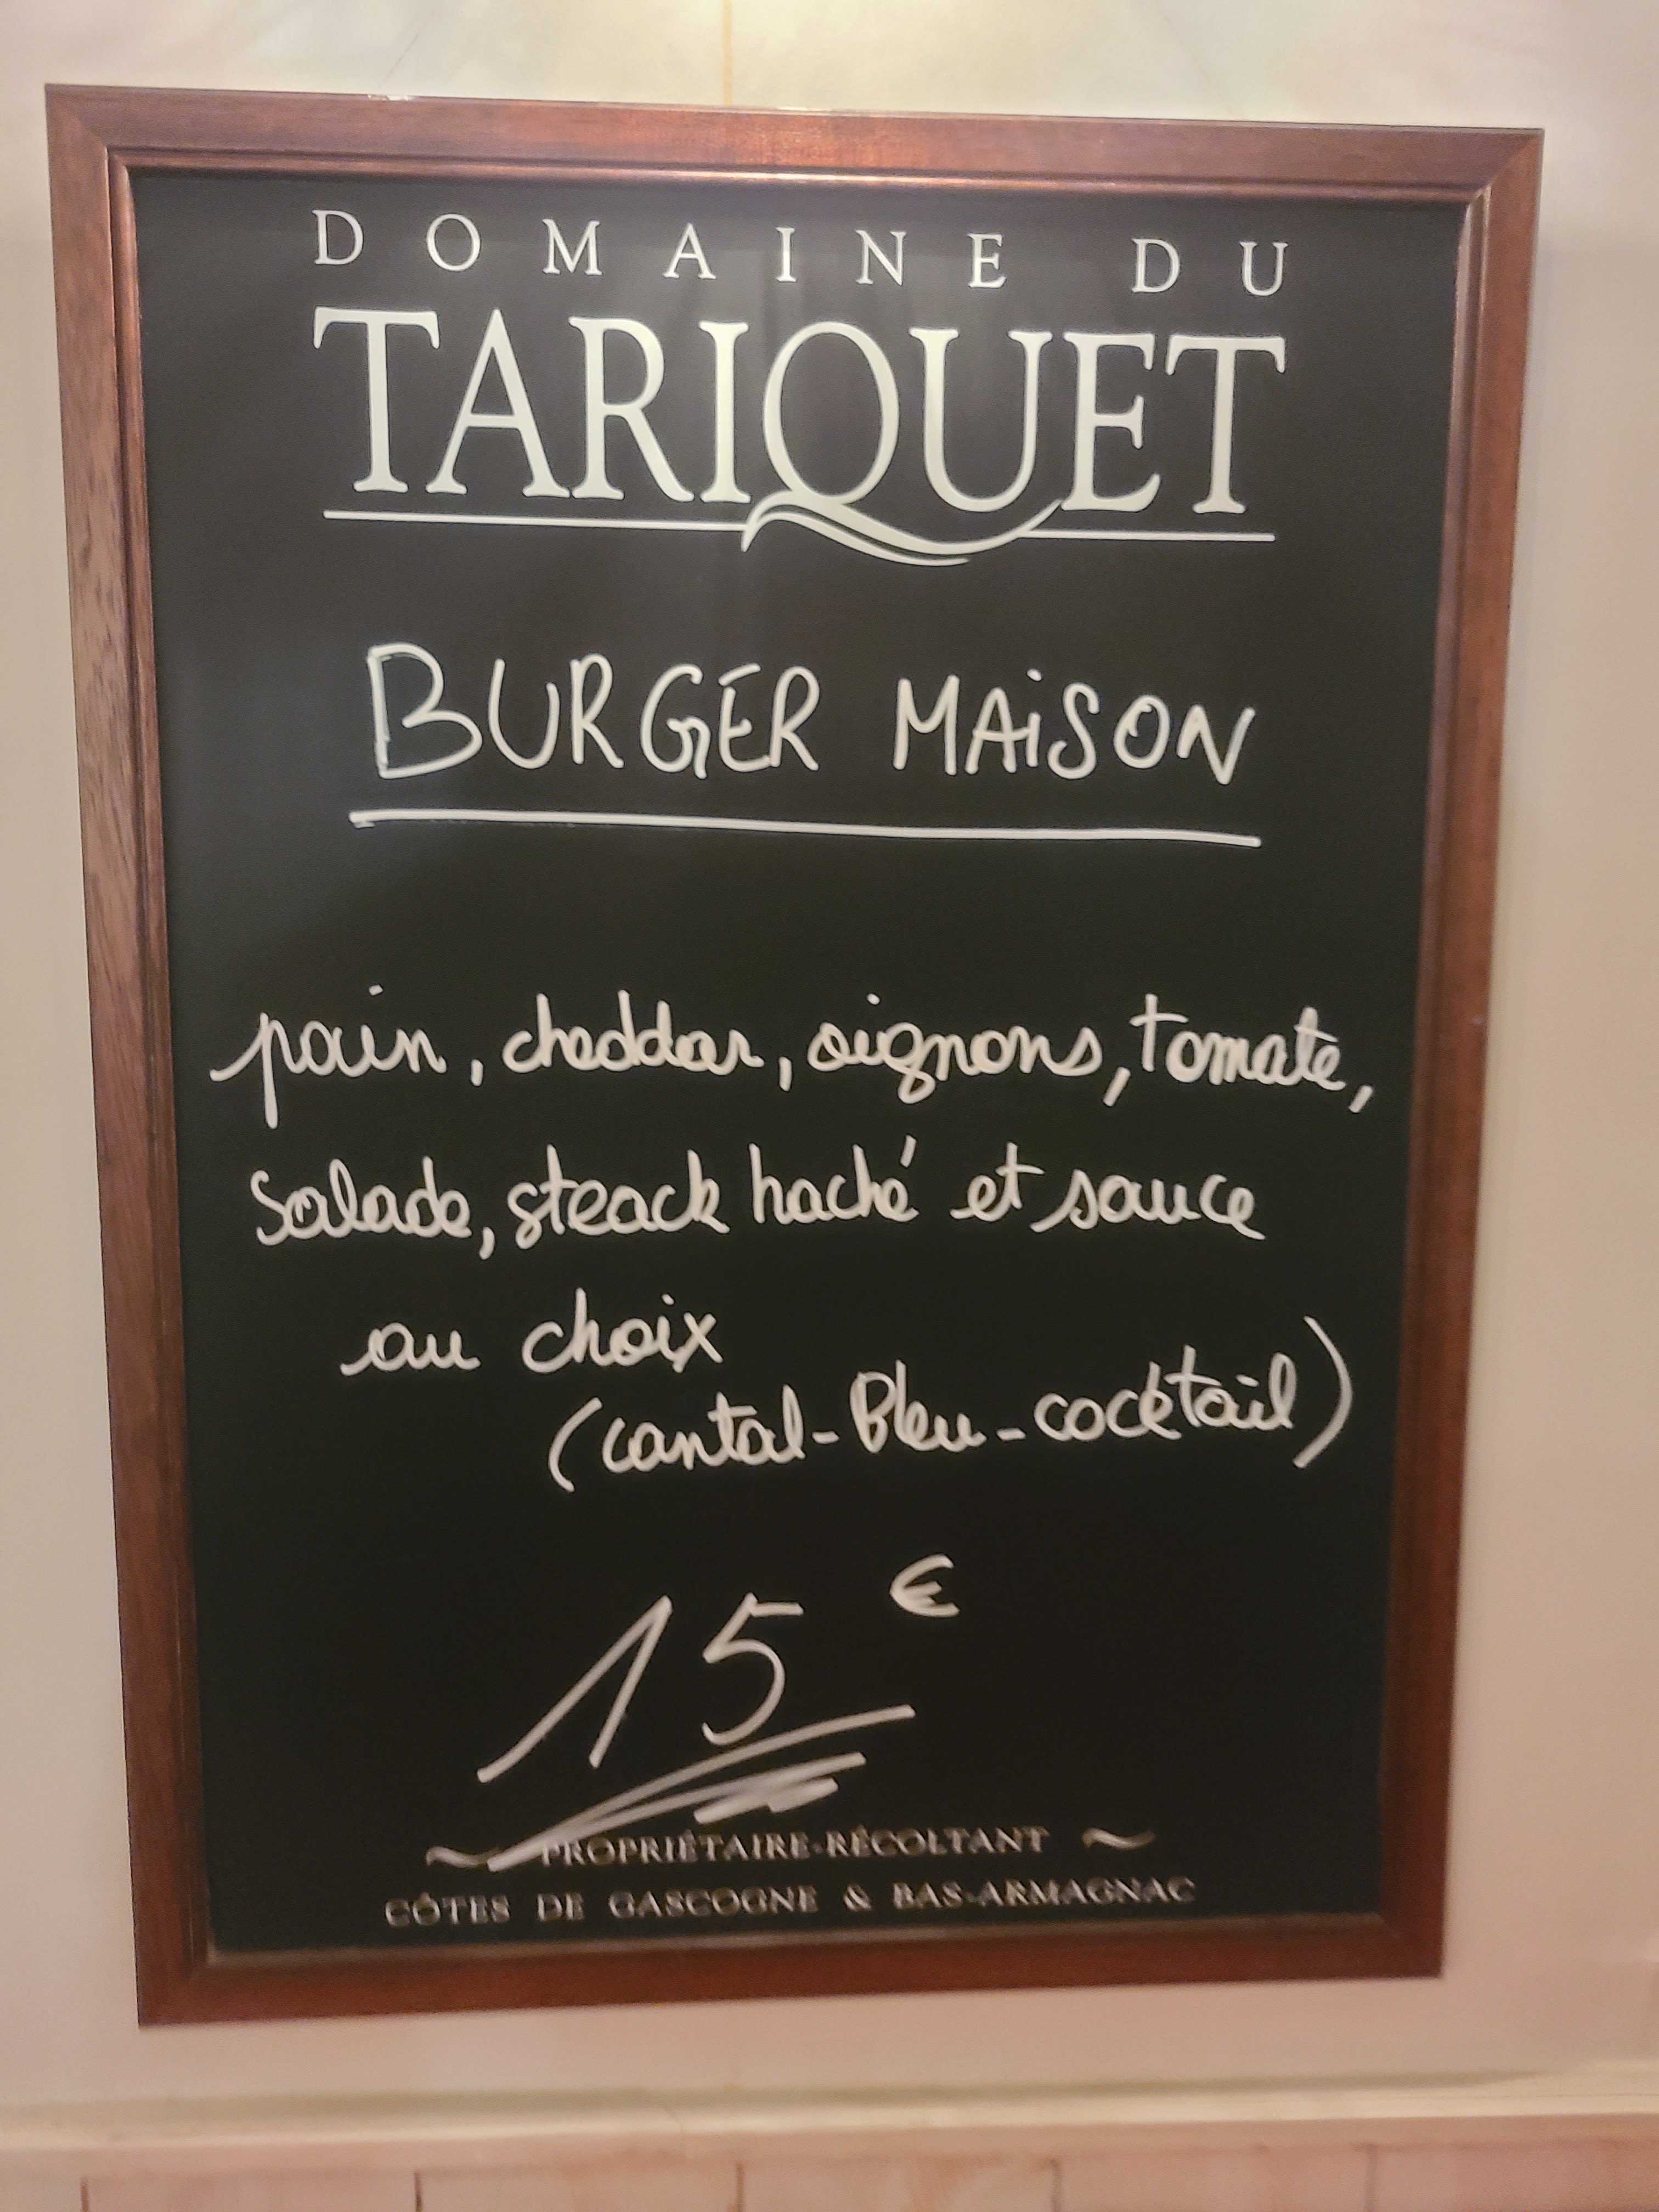 DOMAINE DU
TARIQUET
BURGER MAiSON
pain, cheddar, oignons, tomate,
Salade, steack haché et sauce
au choix
(cantal - Bleu - cocktail)
15 €
PROPRIÉTAIRE-RÉCOLTANT
CÔTES DE GASCOGNE & BAS-ARMAGNAC